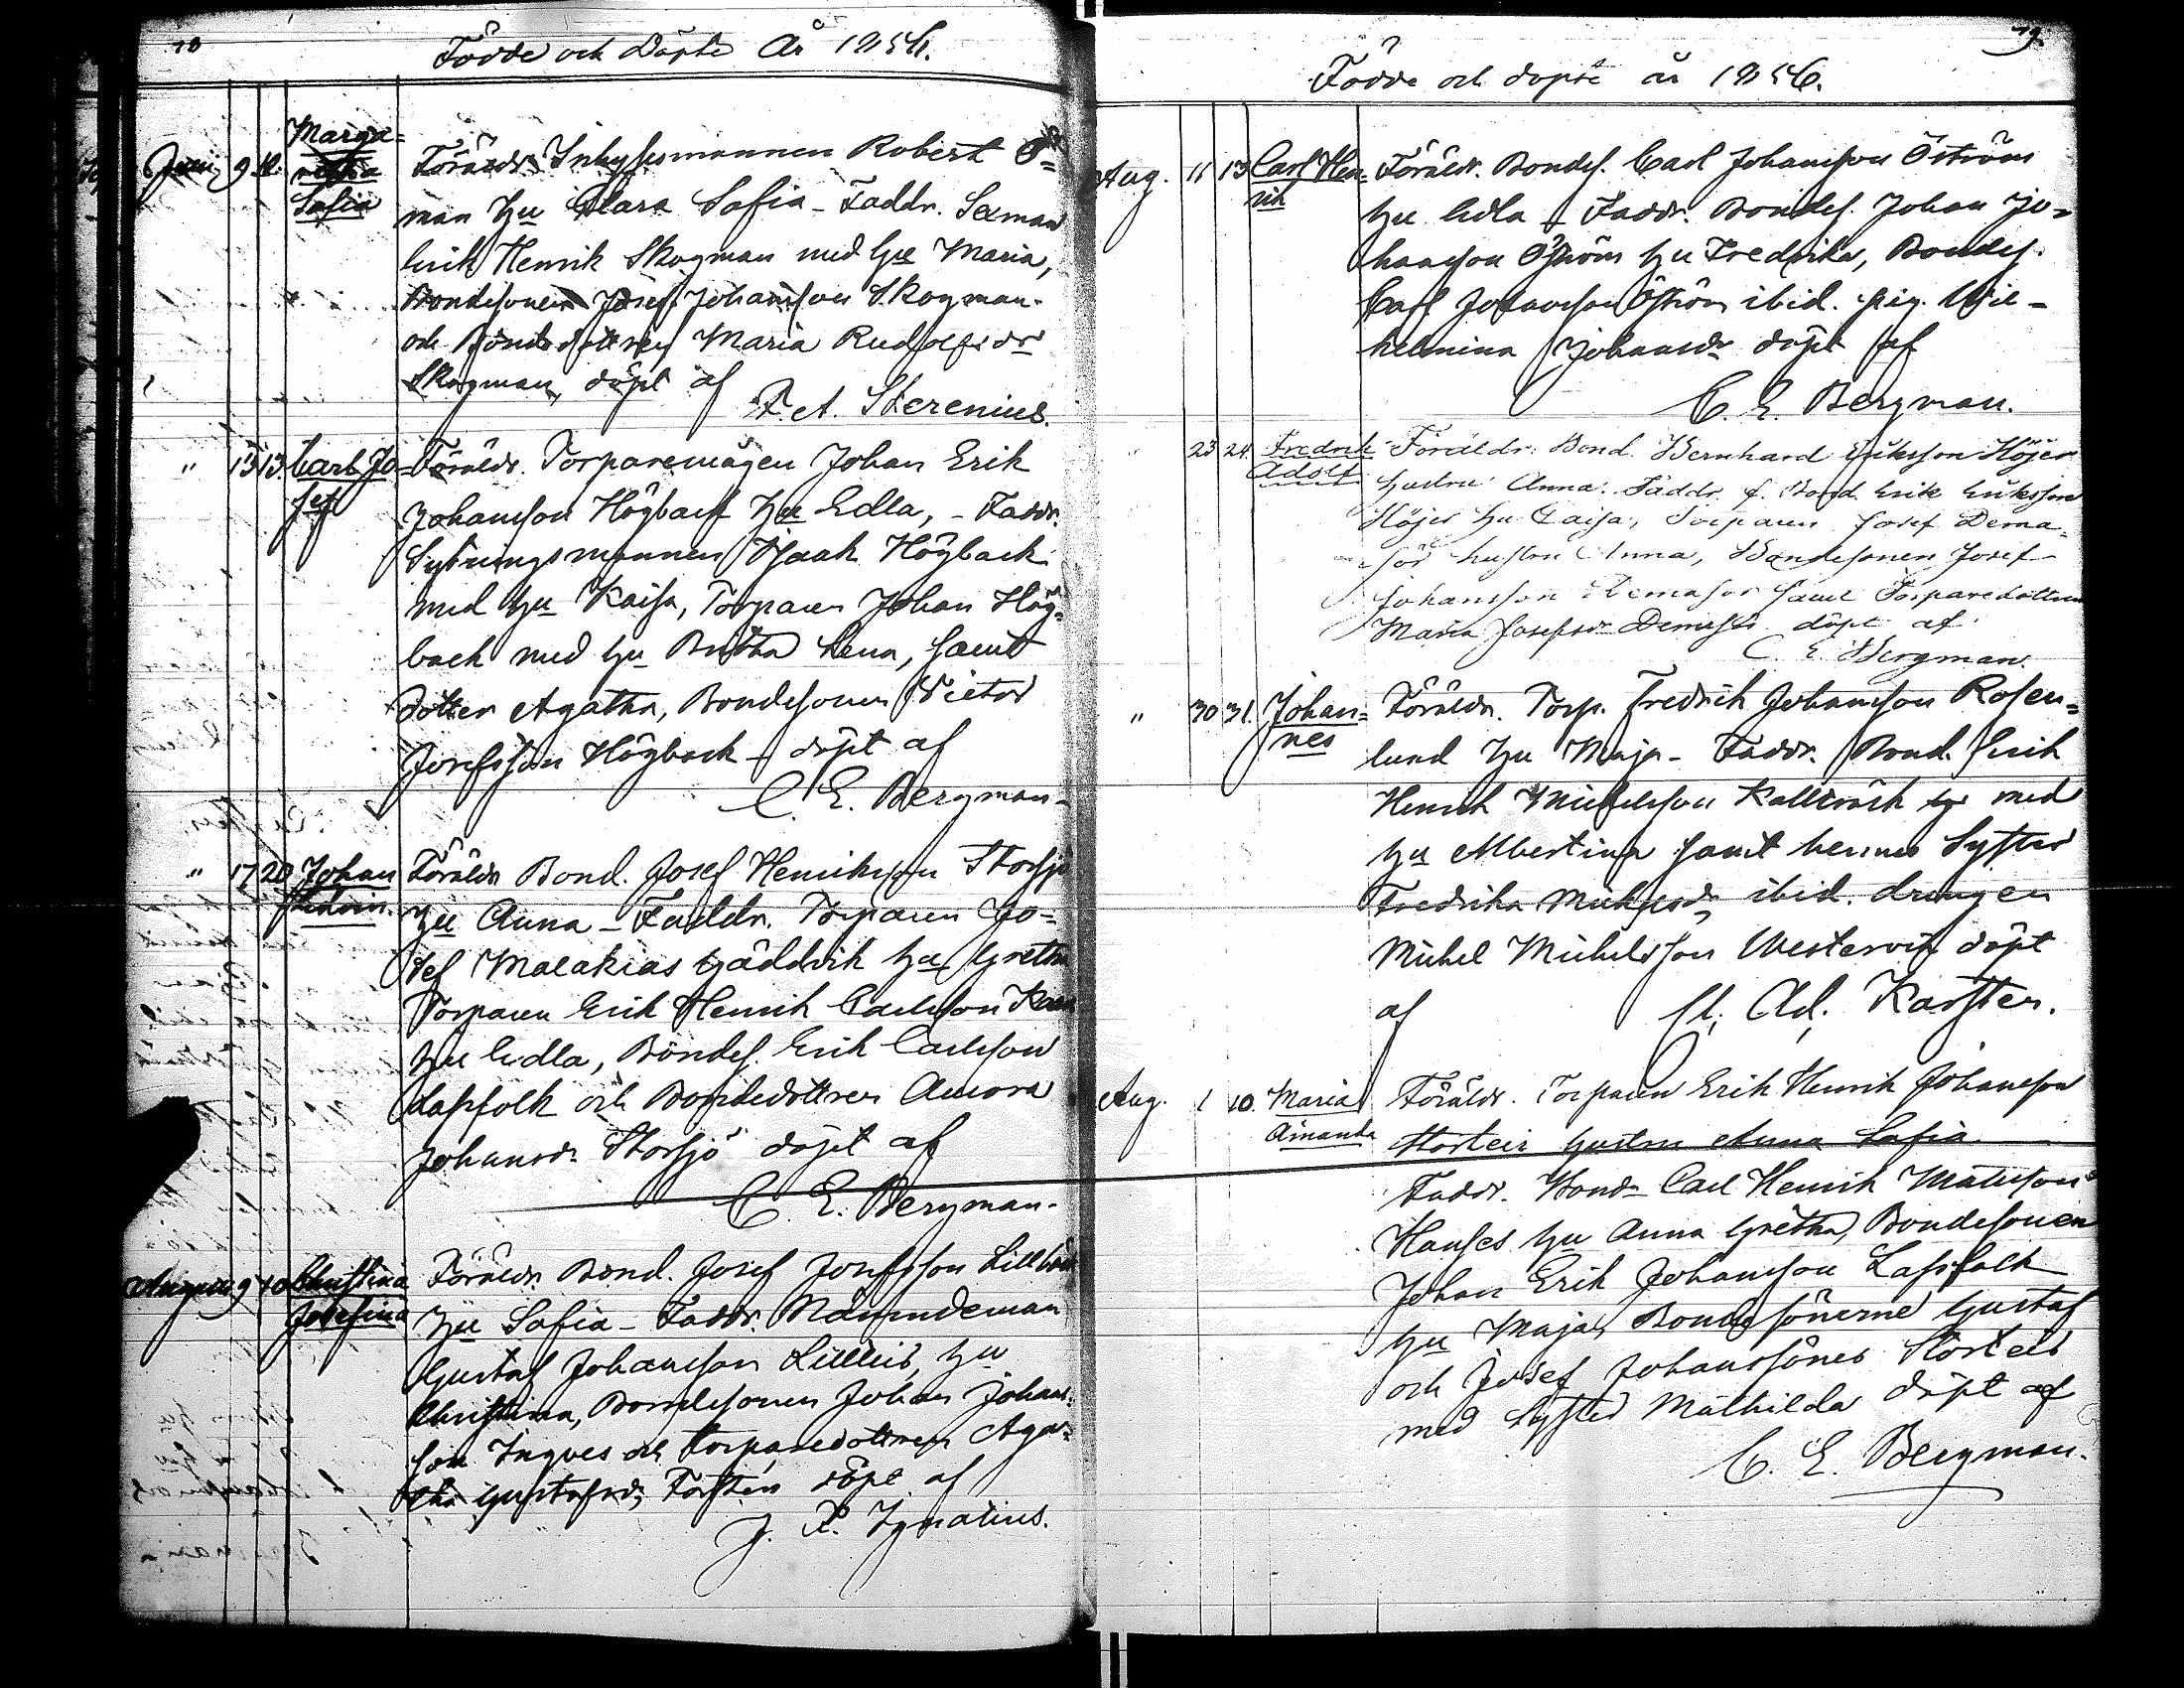 18
Födde och Döpte År 1856.
Juni 9 11. Marga-
retha
Sofia
Föräldr. Inhysesmannen Robert Ö-
man hu Clara Sofia – Faddr. Sexman
Erik Henrik Skogman med hu Maria,
Bondesonen Josef Johansson Skogman
och Bondedottren Maria Rudolfsdr
Skogman, döpt af
F. A. Sterenius.
" 13 13. Carl Jo-
sef
Föräldr. Torparemågen Johan Erik
Johansson Högback hu Edla, – Faddr.
Sytningsmannen Isaak Högback
med hu Kaisa, Torparen Johan Hög-
back med hu Britha Lena, samt
dotter Agatha, Bondesonen Victor
Josefsson Högback – döpt af
C. E. Bergman
" 17 20 Johan
Edvin.
Föräldr Bond. Josef Henriksson Storsjö
hu Anna – Faddr. Torparen Jo-
sef Malakias Gäddvik hu Gretha
Torparen Erik Henrik Carlsson
hu Edla, Bondes. Erik Carlsson
Lassfolk och Bondedottren Aurora
Johansdr Storsjö döpt af
C. E. Bergman
Augusti 9 10 Christina
Josefina
Föräldr Bond. Josef Josefsson
hu Sofia – Faddr. Nämndeman
Gustaf Johansson Lilleis, hu
Christina, Bondesonen Johan Johans-
son Ingves och torparedottren Aga-
tha Gustafsdr Forstén döpt af
J. F. Ignatius.
19.
Födde och döpte år 1856.
Aug. 11 13 Carl Hen-
rik
Föräldr. Bondes. Carl Johansson Öström
hu Edla – Faddr. Bondes. Johan Jo-
hansson Öström hu Fredrika, Bondes.
Carl Johansson Öström ibid. pig. Wil-
helmina Johansdr döpt af
C. E. Bergman.
23 24. Fredrik
Adolf
Föräldr. Bond. Bernhard Eriksson Höjer
hustru Anna. Faddr. f. Bond. Erik Eriksson
Höjer hu Caisa, Torparen Josef Dema-
sör hustru Anna, Bondesonen Josef
Johansson Demasör samt Torparedottren
Maria Josefsdr Demasör döpt af
C. E. Bergman.
" 30 31. Johan-
nes
Föräldr. Torp. Fredrik Johansson Rosen-
lund hu Maja – Faddr. Bond. Erik
Henrik Michelsson med
hu Albertina samt hennes Syster
Fredrika Michelsdr, ibid. drengen
Michel Michelsson Westervik döpt
af Ad. Karsten.
Aug. 1 10. Maria
Amanda
Föräldr. Torparen Erik Henrik Johansson
Storteir hustru Anna Sofia
Faddr. Bond. Carl Henrik Mattsson
Hanses hu Anna Gretha, Bondesonen
Johan Erik Johansson Lassfolk
hu Maja, Bondesönerne Gustaf
och Josef Johanssöner Storteir
med Syster Mathilda döpt af
C. E. Bergman.